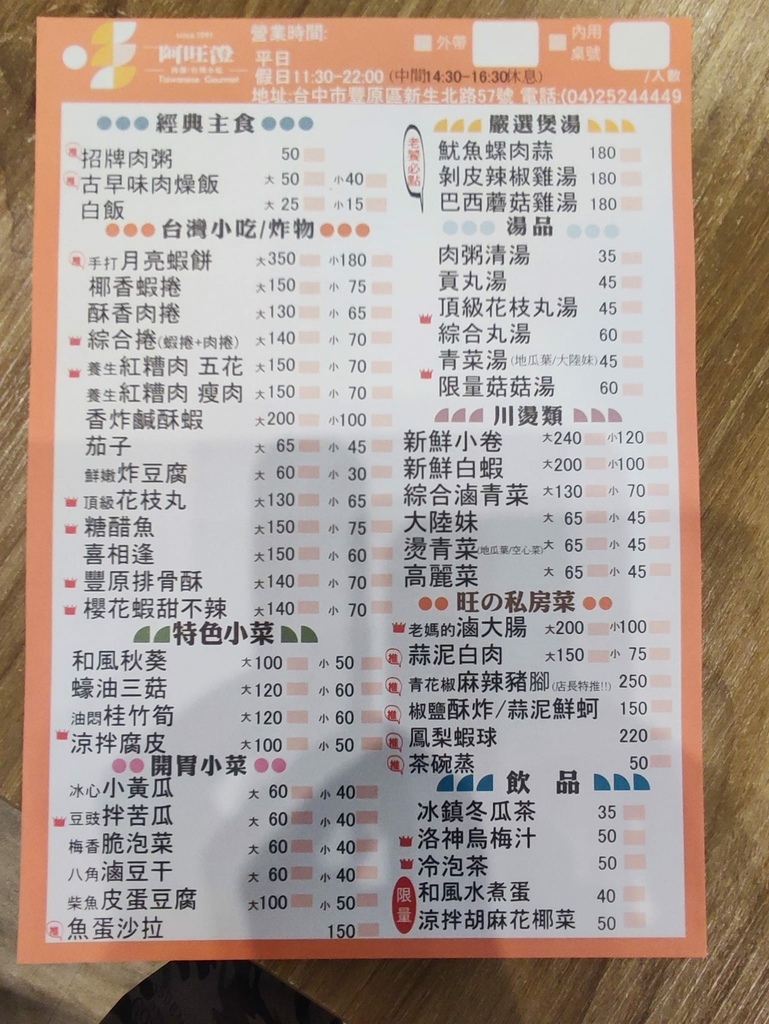 since 1991
阿旺澄
Taiwanese Gourmet
營業時間:
平日
假日11:30-22:00 (中間14:30-16:30休息)
外帶
內用
桌號
/人數
地址:台中市豐原區新生北路57號 電話:(04)25244449
經典主食
推 招牌肉粥 50
推 古早味肉燥飯 大 50 小 40
白飯 大 25 小 15
台灣小吃/炸物
推 手打月亮蝦餅 大350 小180
椰香蝦捲 大150 小 75
酥香肉捲 大130 小 65
綜合捲(蝦捲+肉捲) 大140 小 70
養生紅糟肉 五花 大150 小 70
養生紅糟肉 瘦肉 大150 小 70
香炸鹹酥蝦 大200 小100
茄子 大 65 小 45
鮮嫩炸豆腐 大 60 小 30
頂級花枝丸 大130 小 65
糖醋魚 大150 小 75
喜相逢 大150 小 60
豐原排骨酥 大140 小 70
櫻花蝦甜不辣 大140 小 70
特色小菜
和風秋葵 大100 小 50
蠔油三菇 大120 小 60
油悶桂竹筍 大120 小 60
涼拌腐皮 大100 小 50
開胃小菜
冰心小黃瓜 大 60 小 40
豆豉拌苦瓜 大 60 小 40
梅香脆泡菜 大 60 小 40
八角滷豆干 大 60 小 40
柴魚皮蛋豆腐 大100 小 50
推 魚蛋沙拉 150
嚴選煲湯
老饕必點
魷魚螺肉蒜 180
剝皮辣椒雞湯 180
巴西蘑菇雞湯 180
湯品
肉粥清湯 35
貢丸湯 45
頂級花枝丸湯 45
綜合丸湯 60
青菜湯(地瓜葉/大陸妹) 45
限量菇菇湯 60
川燙類
新鮮小卷 大240 小120
新鮮白蝦 大200 小100
綜合滷青菜 大130 小 70
大陸妹 大 65 小 45
燙青菜(地瓜葉/空心菜) 大 65 小 45
高麗菜 大 65 小 45
旺の私房菜
老媽的滷大腸 大200 小100
推 蒜泥白肉 大150 小 75
推 青花椒麻辣豬腳(店長特推!!) 250
推 椒鹽酥炸/蒜泥鮮蚵 150
推 鳳梨蝦球 220
推 茶碗蒸 50
飲 品
冰鎮冬瓜茶 35
洛神烏梅汁 50
冷泡茶 50
限量
和風水煮蛋 40
涼拌胡麻花椰菜 50